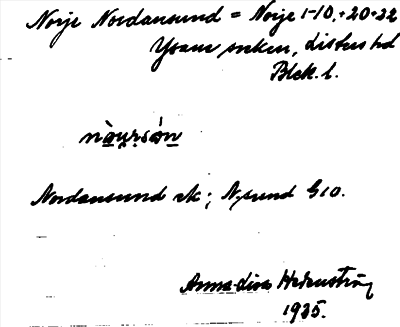 Norje Nordansund = Norje 1-10, 20-22
Ysane socken, Listers hd
Blek. l.
Nordansund sk; N.sund G10.
Anna-Lisa Hedenström
1935.